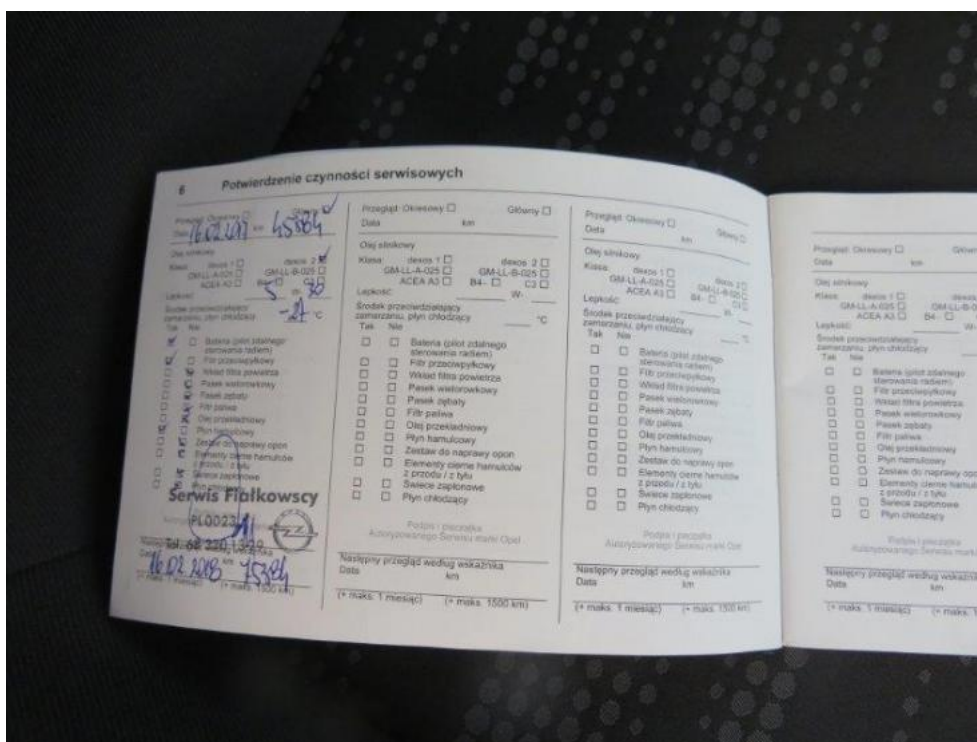 6 Potwierdzenie czynności serwisowych
Przegląd: Okresowy Główny
Data 16.02.2017 km 45384
Olej silnikowy
Klasa: dexos 1 dexos 2
GM-LL-A-025 GM-LL-B-025
ACEA A3 B4- C3
Lepkość: 5 W- 30
Środek przeciwdziałający
zamarzaniu, płyn chłodzący °C
Tak Nie
Bateria (pilot zdalnego
sterowania radiem)
Filtr przeciwpyłkowy
Wkład filtra powietrza
Pasek wielorowkowy
Pasek zębaty
Filtr paliwa
Olej przekładniowy
Płyn hamulcowy
Zestaw do naprawy opon
Elementy cierne hamulców
z przodu / z tyłu
Świece zapłonowe
Płyn chłodzący
Serwis Fiałkowscy
PL0023
Data 16.02.2018 75384
(+ maks. 1 miesiąc) (+ maks. 1500 km)
Przegląd: Okresowy Główny
Data km
Olej silnikowy
Klasa: dexos 1 dexos 2
GM-LL-A-025 GM-LL-B-025
ACEA A3 B4- C3
Lepkość: W-
Środek przeciwdziałający
zamarzaniu, płyn chłodzący °C
Tak Nie
Bateria (pilot zdalnego
sterowania radiem)
Filtr przeciwpyłkowy
Wkład filtra powietrza
Pasek wielorowkowy
Pasek zębaty
Filtr paliwa
Olej przekładniowy
Płyn hamulcowy
Zestaw do naprawy opon
Elementy cierne hamulców
z przodu / z tyłu
Świece zapłonowe
Płyn chłodzący
Podpis i pieczątka
Autoryzowanego Serwisu marki Opel
Następny przegląd według wskaźnika
Data km
(+ maks. 1 miesiąc) (+ maks. 1500 km)
Przegląd: Okresowy Główny
Data km
Olej silnikowy
Klasa: dexos 1 dexos 2
GM-LL-A-025 GM-LL-B-025
ACEA A3 B4- C3
Lepkość: W-
Środek przeciwdziałający
zamarzaniu, płyn chłodzący °C
Tak Nie
Bateria (pilot zdalnego
sterowania radiem)
Filtr przeciwpyłkowy
Wkład filtra powietrza
Pasek wielorowkowy
Pasek zębaty
Filtr paliwa
Olej przekładniowy
Płyn hamulcowy
Zestaw do naprawy opon
Elementy cierne hamulców
z przodu / z tyłu
Świece zapłonowe
Płyn chłodzący
Podpis i pieczątka
Autoryzowanego Serwisu marki Opel
Następny przegląd według wskaźnika
Data km
(+ maks. 1 miesiąc) (+ maks. 1500 km)
Przegląd: Okresowy
Data km
Olej silnikowy
Klasa: dexos 1
GM-LL-A-025
ACEA A3 B4-
Lepkość: W-
Środek przeciwdziałający
zamarzaniu, płyn chłodzący
Tak Nie
Bateria (pilot zdalnego
sterowania radiem)
Filtr przeciwpyłkowy
Wkład filtra powietrza
Pasek wielorowkowy
Pasek zębaty
Filtr paliwa
Olej przekładniowy
Płyn hamulcowy
Zestaw do naprawy
Elementy cierne
z przodu / z tyłu
Świece zapłonowe
Płyn chłodzący
Podpis i pieczątka
Autoryzowanego Serwisu
Następny przegląd według wskaźnika
Data km
(+ maks. 1 miesiąc) (+ maks.